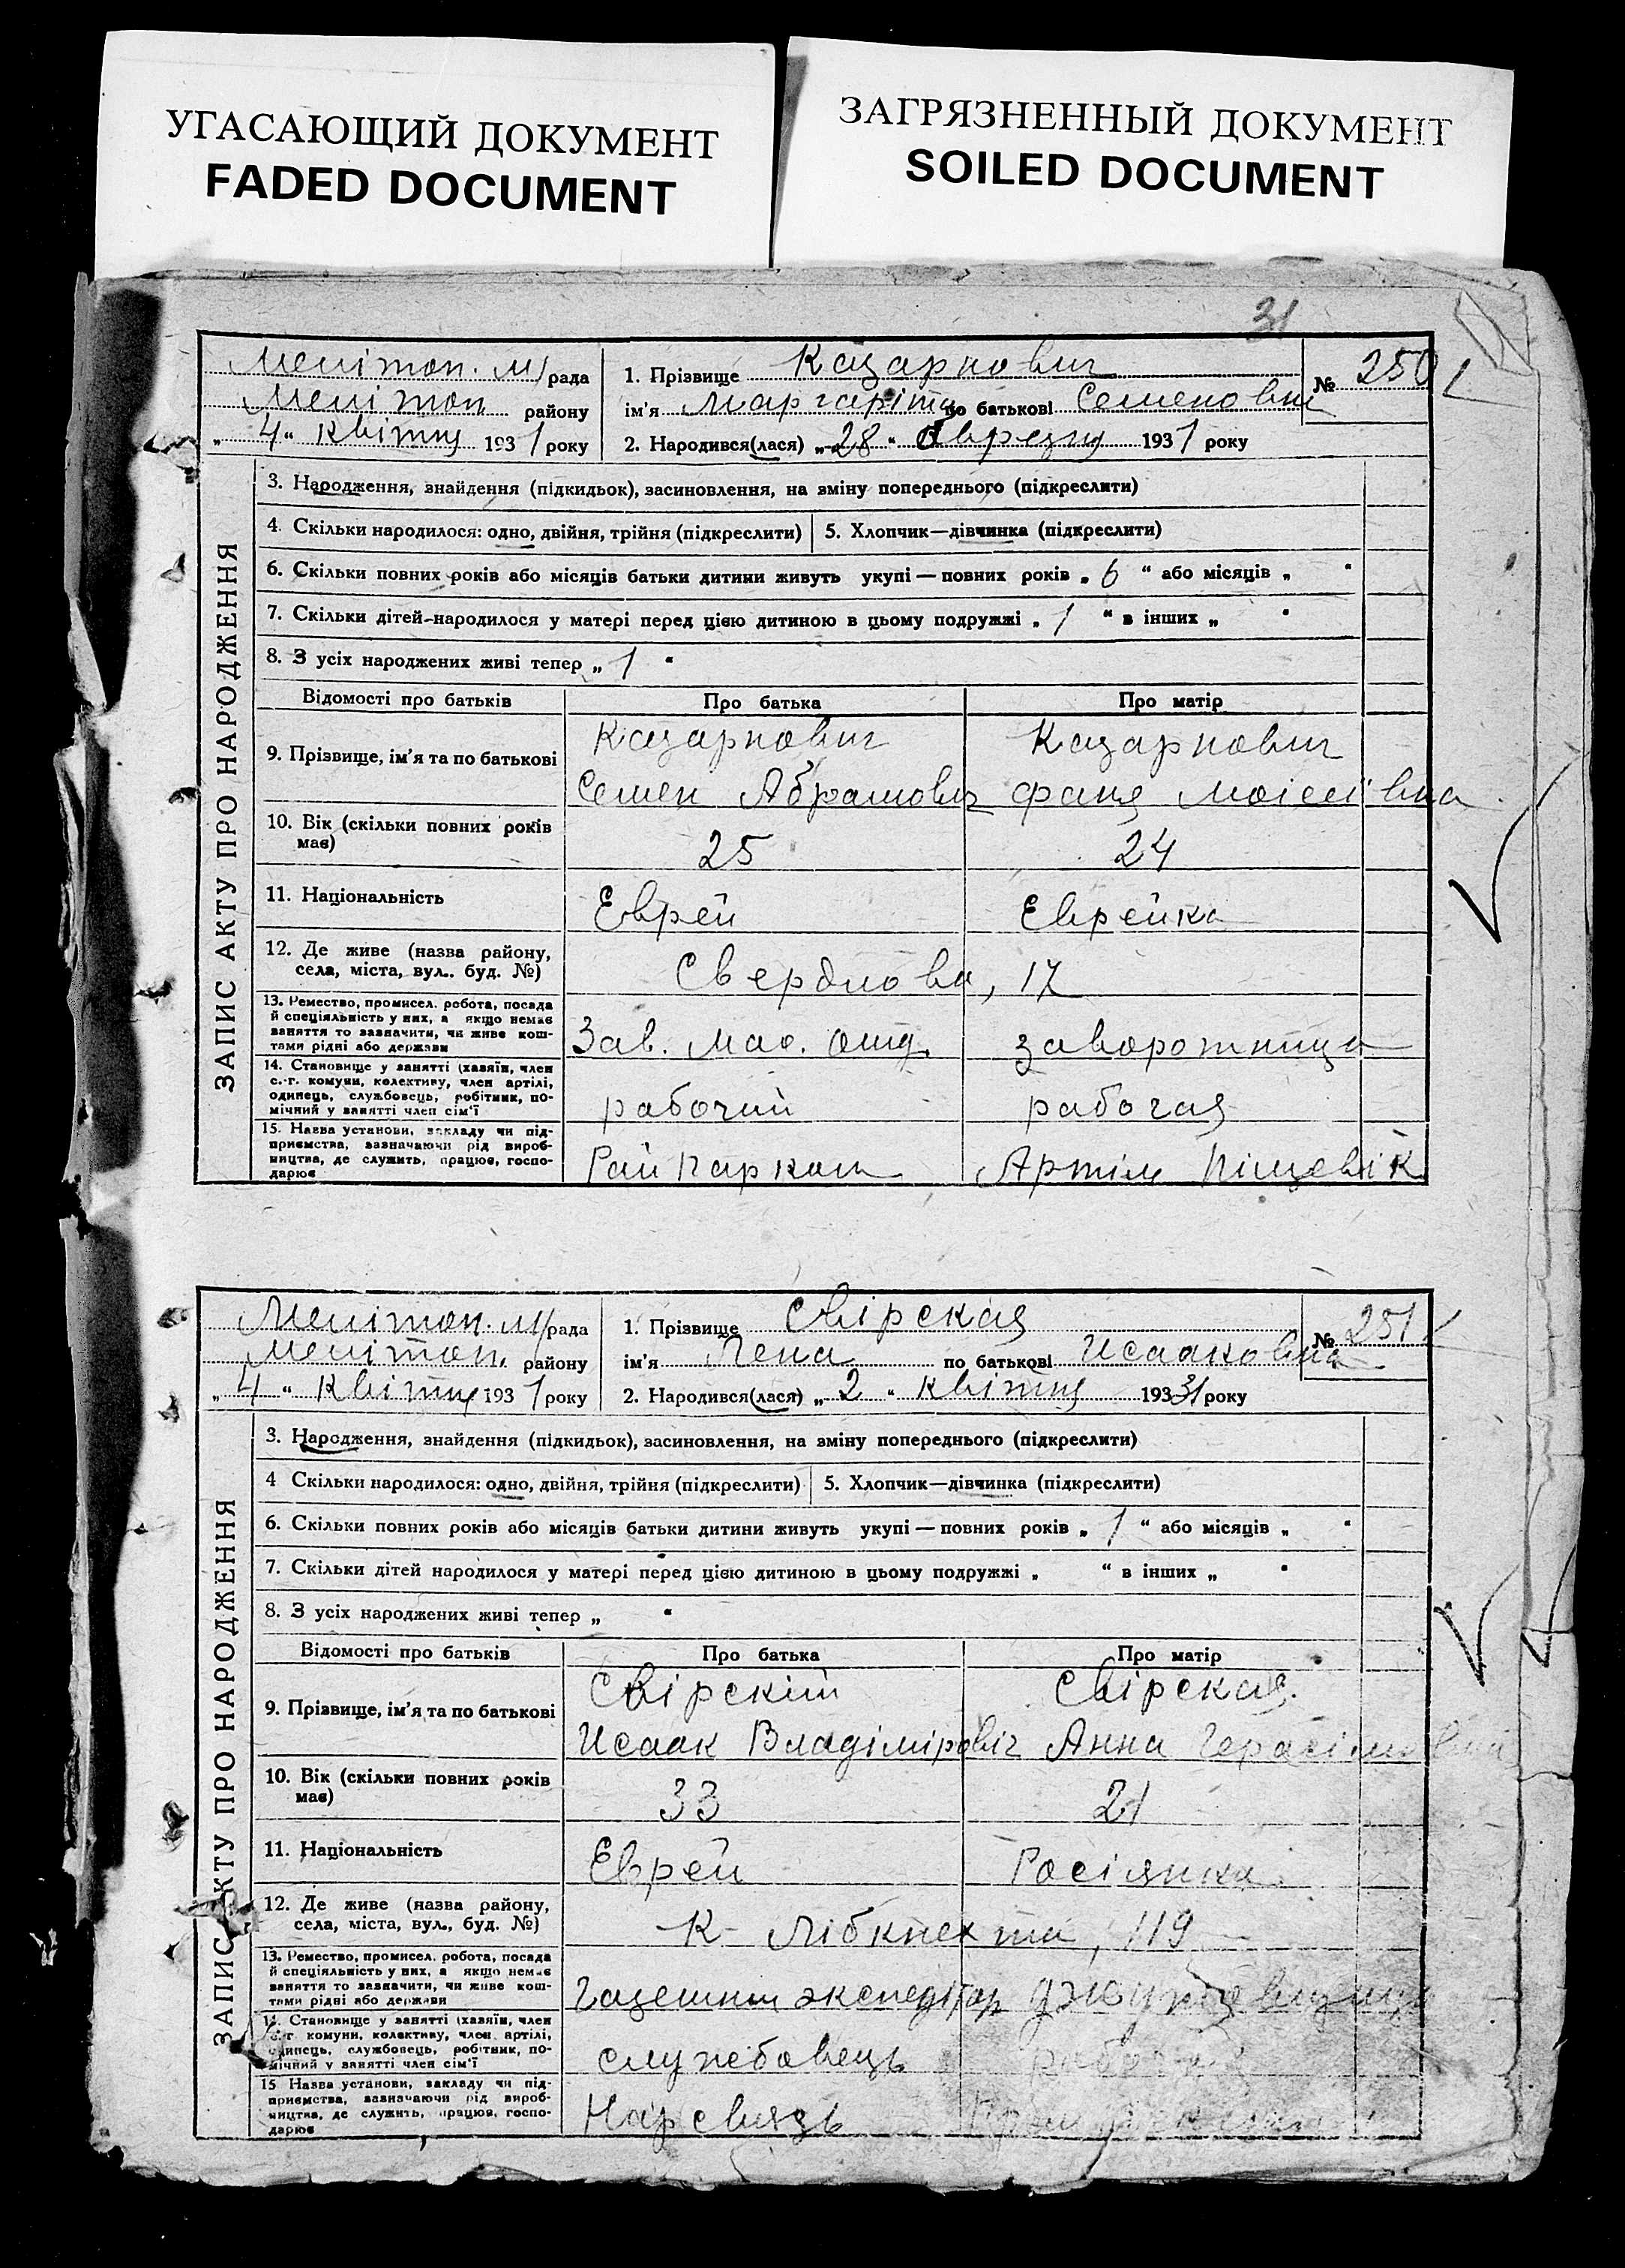 УГАСАЮЩИЙ ДОКУМЕНТ
FADED DOCUMENT
ЗАГРЯЗНЕННЫЙ ДОКУМЕНТ
SOILED DOCUMENT
31
ЗАПИС АКТУ ПРО НАРОДЖЕННЯ
Мелітоп. М/рада
Мелітоп району
„ 4 “ квітня 1931 року
1. Прізвище Кацарнович
№ 250
ім'я Маргаріта по батькові Семеновна
2. Народився(лася) „ 28 “ березня 1931 року
3. Народження, знайдення (підкидьок), засиновлення, на зміну попереднього (підкреслити)
4. Скільки народилося: одно, двійня, трійня (підкреслити) 5. Хлопчик—дівчинка (підкреслити)
6. Скільки повних років або місяців батьки дитини живуть укупі — повних років „ 6 “ або місяців „ “
7. Скільки дітей народилося у матері перед цією дитиною в цьому подружжі „ 1 “ в інших „ “
8. З усіх народжених живі тепер „ 1 “
Відомості про батьків Про батька Про матір
9. Прізвище, ім'я та по батькові
Кацарнович Кацарнович
Семен Абрамович Фаня Моісеївна
10. Вік (скільки повних років має)
25 24
11. Національність
Еврей Еврейка
12. Де живе (назва району, села, міста, вул., буд. №)
Свердлова, 17
13. Ремество, промисел. робота, посада
й спеціяльність у них, а якщо немає
заняття то зазначити, чи живе кош-
тами рідні або держави
Зав. Мас. отд. заворотница
14. Становище у занятті (хазяїн, член
с.-г. комуни, колективу, член артілі,
одинець, службовець, робітник, по-
мічний у занятті член сім'ї
рабочий рабочая
15. Назва установи, закладу чи під-
приємства, зазначаючи рід вироб-
ництва, де служить, працює, госпо-
дарює
Райпарком Артіль Піщевік
ЗАПИС АКТУ ПРО НАРОДЖЕННЯ
Мелітоп. М/рада
Мелітоп. району
„ 4 “ квітня 1931 року
1. Прізвище Свірская
№ 251
ім'я Лена по батькові Исааковна
2. Народився(лася) „ 2 “ квітня 1931 року
3. Народження, знайдення (підкидьок), засиновлення, на зміну попереднього (підкреслити)
4 Скільки народилося: одно, двійня, трійня (підкреслити) 5. Хлопчик—дівчинка (підкреслити)
6. Скільки повних років або місяців батьки дитини живуть укупі — повних років „ 1 “ або місяців „ “
7. Скільки дітей народилося у матері перед цією дитиною в цьому подружжі „ “ в інших „ “
8. З усіх народжених живі тепер „ “
Відомості про батьків Про батька Про матір
9. Прізвище, ім'я та по батькові
Свірскій Свірская
Исаак Владіміровіч Анна Герасімовна
10. Вік (скільки повних років має)
33 21
11. Національність
Еврей Росіянка
12. Де живе (назва району, села, міста, вул., буд. №)
К Лібкнехта, 119
13. Ремество, промисел. робота, посада
й спеціяльність у них, а якщо немає
заняття то зазначити, чи живе кош-
тами рідні або держави
экспедітор
14. Становище у занятті (хазяїн, член
с.-г. комуни, колективу, член артілі,
одинець, службовець, робітник, по-
мічний у занятті член сім'ї
служебовець рабочая
15 Назва установи, закладу чи під-
приємства, зазначаючи рід вироб-
ництва, де служить, працює, госпо-
дарює
Нарсвязь